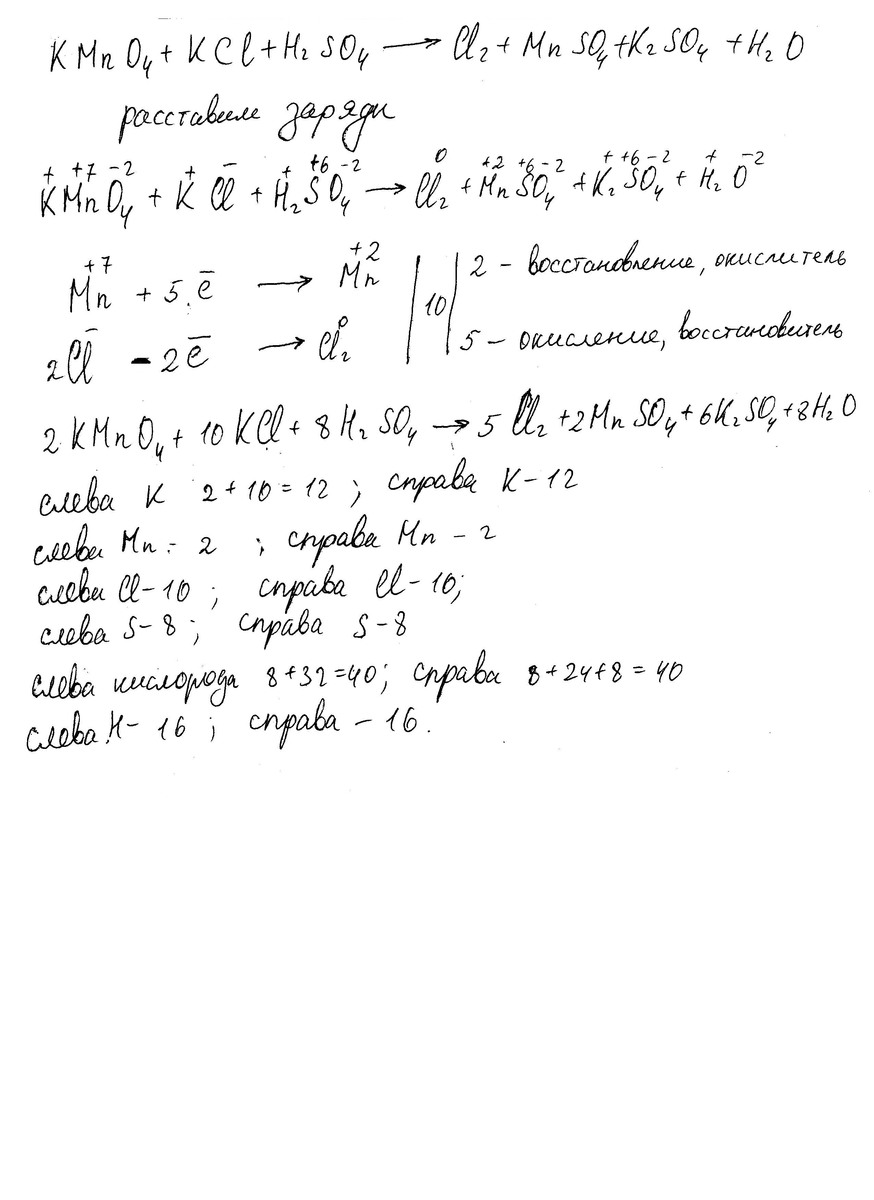 KMnO₄ + KCl + H₂SO₄ → Cl₂ + MnSO₄ + K₂SO₄ + H₂O
расставим заряди
K⁺Mn⁺⁷O₄⁻² + K⁺Cl⁻ + H₂⁺S⁺⁶O₄⁻² → Cl₂⁰ + Mn⁺²S⁺⁶O₄⁻² + K₂⁺S⁺⁶O₄⁻² + H₂⁺O⁻²
Mn⁺⁷ + 5ē → Mn⁺² | 10 | 2 – восстановление, окислитель
2Cl⁻ - 2ē → Cl₂⁰ | 5 – окисление, восстановитель
2KMnO₄ + 10KCl + 8H₂SO₄ → 5Cl₂ + 2MnSO₄ + 6K₂SO₄ + 8H₂O
слева K 2+10=12 ; справа K-12
слева Mn - 2 ; справа Mn - 2
слева Cl-10 ; справа Cl-10;
слева S-8 ; справа S-8
слева кислорода 8+32=40; справа 8+24+8=40
слева H- 16 ; справа - 16.